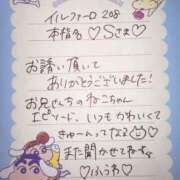 イルファーロ 208
本指名 ♡Sさま♡
お誘い頂いて
ありがとうございました!
お兄さんちのねこちゃん
エピソード、いつもかわいくて
きゅーんってなる
また聞かせてね
♡ふうわ♡